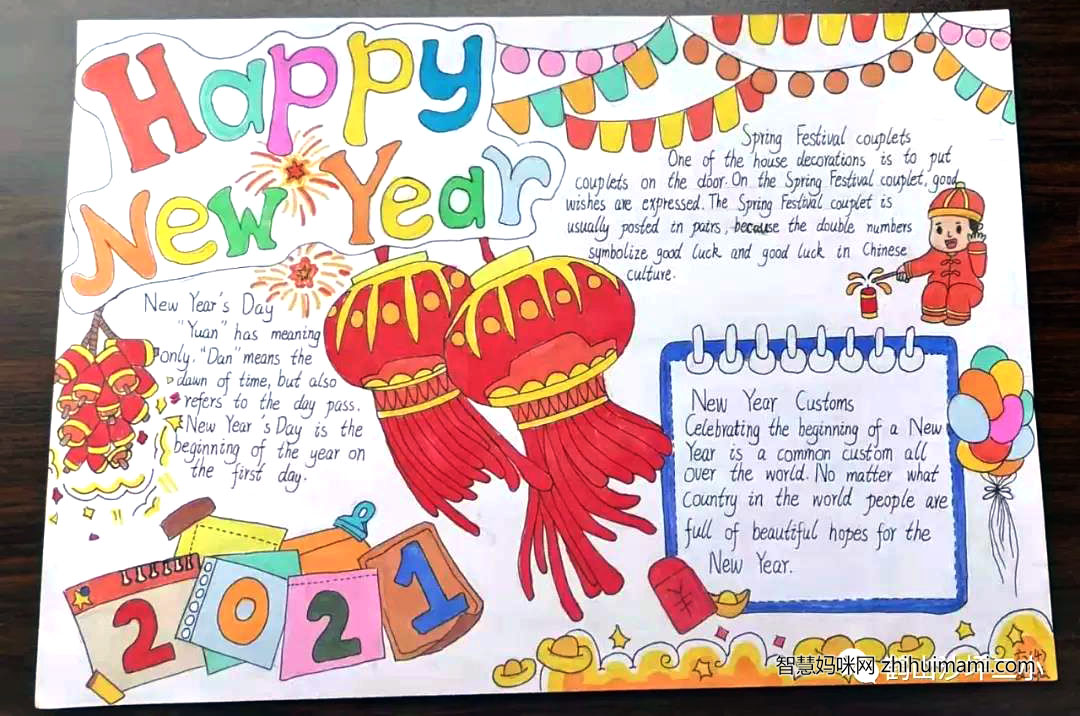 Happy
New Year
Spring Festival couplets
One of the house decorations is to put
couplets on the door. On the Spring Festival couplet, good
wishes are expressed. The Spring Festival couplet is
usually posted in pairs, because the double numbers
symbolize good luck and good luck in Chinese
culture.
New Year's Day
"Yuan" has meaning
only. "Dan" means the
dawn of time, but also
refers to the day pass.
New Year's Day is the
beginning of the year on
the first day.
New Year Customs
Celebrating the beginning of a New
Year is a common custom all
over the world. No matter what
country in the world people are
full of beautiful hopes for the
New Year.
2021
¥
智慧妈咪网 zhihuimami.com